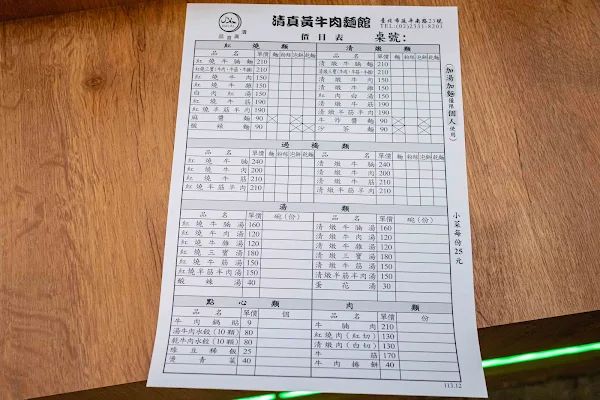 清真黃牛肉麵館
臺北市延平南路23號
TEL:(02)2331-8203
價目表 桌號：
紅燒類 清燉類
品名 單價 麵 粉絲 泡餅 乾麵 品名 單價 麵 粉絲 泡餅 乾麵
紅燒牛腩麵 210 清燉牛腩麵 210
紅燒三寶(牛肉、牛筋、牛雜) 210 清燉三寶(牛肉、牛筋、牛雜) 210
紅燒牛肉麵 150 清燉牛肉麵 150
紅燒牛雜 150 清燉牛雜 150
白肉紅湯 150 紅肉白湯 150
紅燒牛筋 190 清燉牛筋 190
紅燒羊筋羊肉 190 清燉羊筋羊肉 190
麻醬麵 90 牛炸醬麵 90
酸辣麵 90 沙茶麵 90
過橋類
品名 單價 麵 粉絲 泡餅 乾麵 品名 單價 麵 粉絲 泡餅 乾麵
紅燒牛腩 240 清燉牛腩 240
紅燒牛肉 200 清燉牛肉 200
紅燒牛筋 210 清燉牛筋 210
紅燒羊筋羊肉 210 清燉羊筋羊肉 210
湯類
品名 單價 碗(份) 品名 單價 碗(份)
紅燒牛腩湯 160 清燉牛腩湯 160
紅燒牛肉湯 120 清燉牛肉湯 120
紅燒牛雜湯 120 清燉牛雜湯 120
紅燒三寶湯 180 清燉三寶湯 180
紅燒牛筋湯 150 清燉牛筋湯 150
紅燒羊筋羊肉湯 150 清燉羊筋羊肉湯 150
酸辣湯 40 蛋花湯 30
點心類 肉類
品名 單價 個 品名 單價 份
牛肉鍋貼 9 牛腩肉 210
湯牛肉水餃(10顆) 80 紅燒肉(紅切) 130
乾牛肉水餃(10顆) 80 清燉肉(白切) 130
綠豆稀飯 25 牛筋 170
燙青菜 40 牛肉捲餅 40
(加湯加麵僅限個人使用)
小菜每份25元
113.12